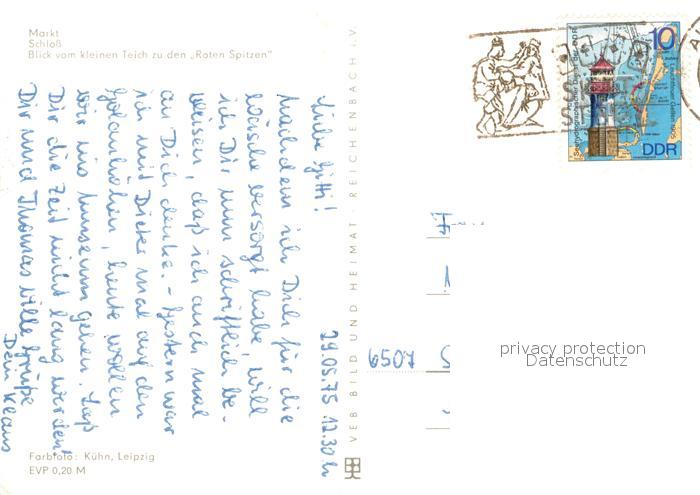 Markt
Schloß
Blick vom kleinen Teich zu den „Roten Spitzen"
29.05.75 12.30 h
Liebe Gitti!
Nachdem ich Dich für die
Wäsche versorgt habe, will
ich Dir nun schriftlich be-
weisen, daß ich auch mal
an Dich denke. - Gestern war
ich mit Dieter mal auf den
heute wollen
wir ins Museum gehen. Laß
Dir die Zeit nicht lang werden!
Dir und Thomas viele Grüße
Dein Klaus
Farbfoto: Kühn, Leipzig
EVP 0,20 M
VEB BILD UND HEIMAT · REICHENBACH i.V.
10
DDR
6507
privacy protection
Datenschutz